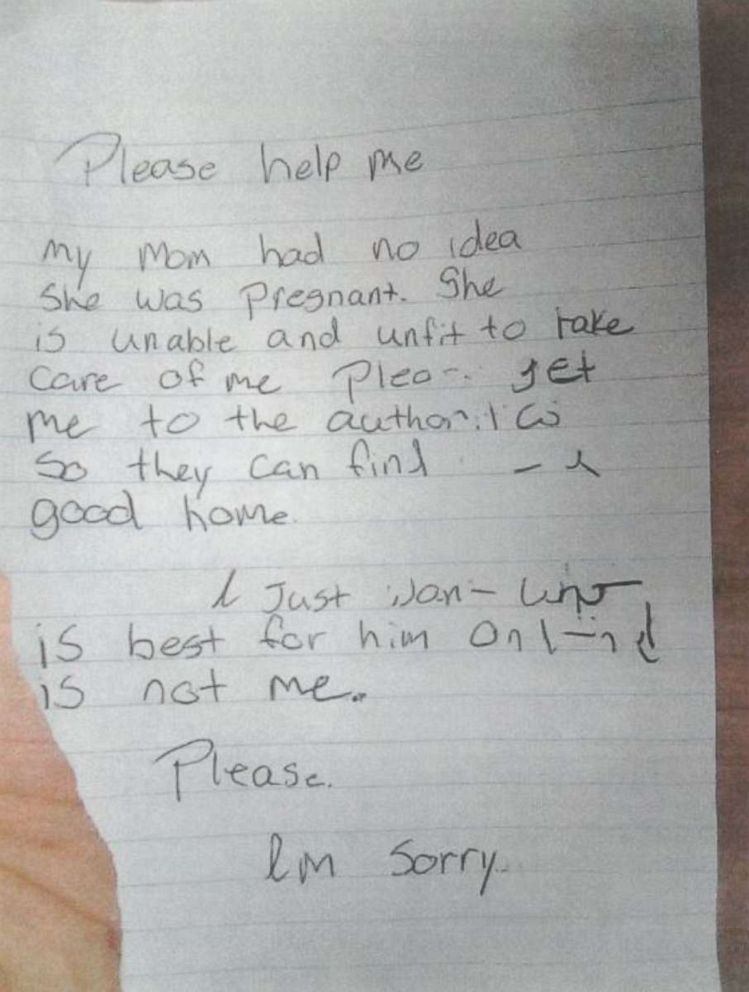 Please help me
my mom had no idea
She was Pregnant. She
is unable and unfit to take
care of me get
me to the
so they can find
good home.
I Just
is best for him
is not me..
Please.
Im Sorry.